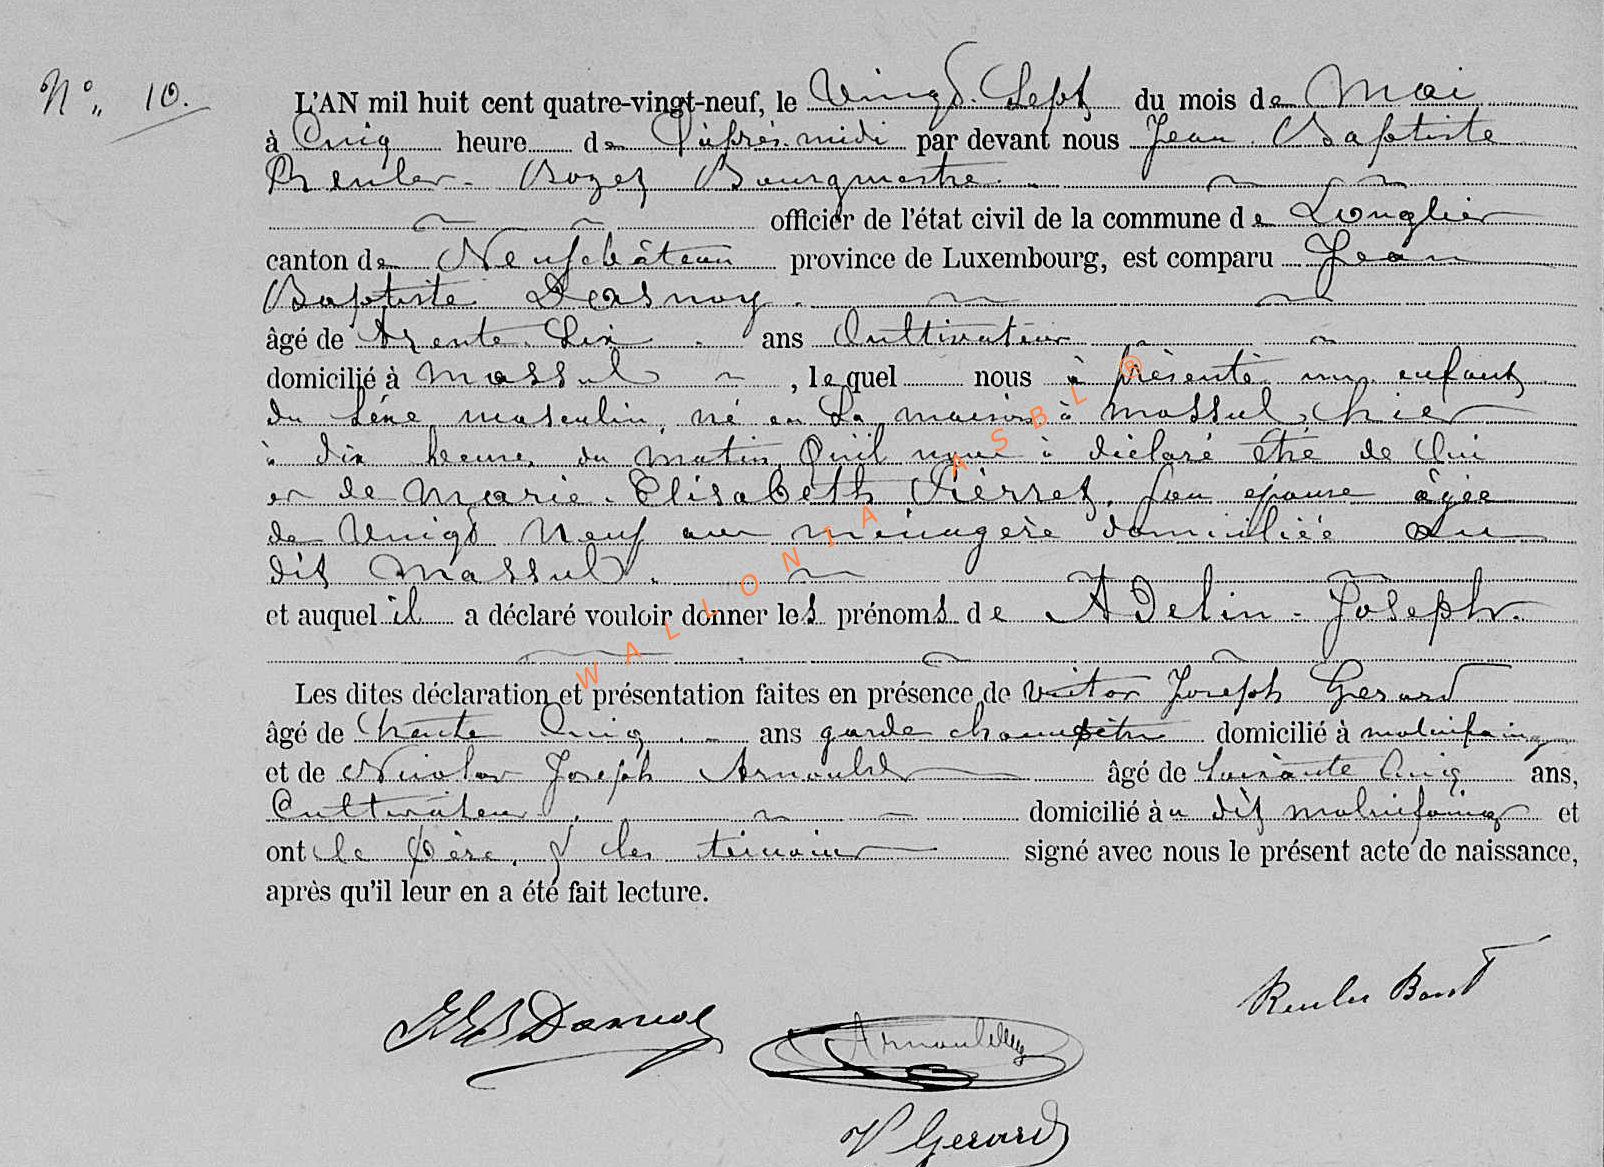 N°. 10.
L'AN mil huit cent quatre-vingt-neuf, le Vingt Sept du mois de Mai
à Cinq heure de l'après midi par devant nous Jean Baptiste
Renler Bozet Bourgmestre.
officier de l'état civil de la commune de Longlier
canton de Neufchâteau province de Luxembourg, est comparu Jean
Baptiste Dasnoy.
âgé de trente Six ans Cultivateur
domicilié à Massul, lequel nous à présenté un enfant
du Séxe masculin, né en sa maison à Massul, hier
à dix heures du matin, qu'il nous à déclaré être de lui
et de Marie-Elisabeth Pierret, son épouse âgée
de Vingt Neuf ans ménagère domiciliée au
dit Massul.
et auquel il a déclaré vouloir donner les prénoms de Adelin-Joseph.
Les dites déclaration et présentation faites en présence de Victor Joseph Gerard
âgé de trente Cinq ans garde champêtre domicilié à molinfaing
et de Nicolas Joseph Arnould âgé de soixante Cinq ans,
Cultivateur domicilié au dit molinfaing et
ont le Père, & les témoins signé avec nous le présent acte de naissance,
après qu'il leur en a été fait lecture.
JB Dasnoy
Arnould
V Gerard
WALLONIA ASBL ®